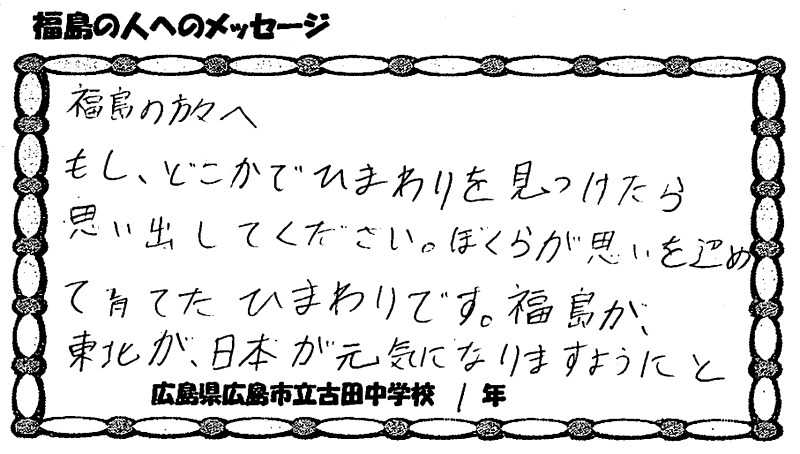 福島の人へのメッセージ
福島の方々へ
もし、どこかでひまわりを見つけたら
思い出してください。ぼくらが思いを込め
て育てたひまわりです。福島が、
東北が、日本が元気になりますようにと
広島県広島市立古田中学校 1年